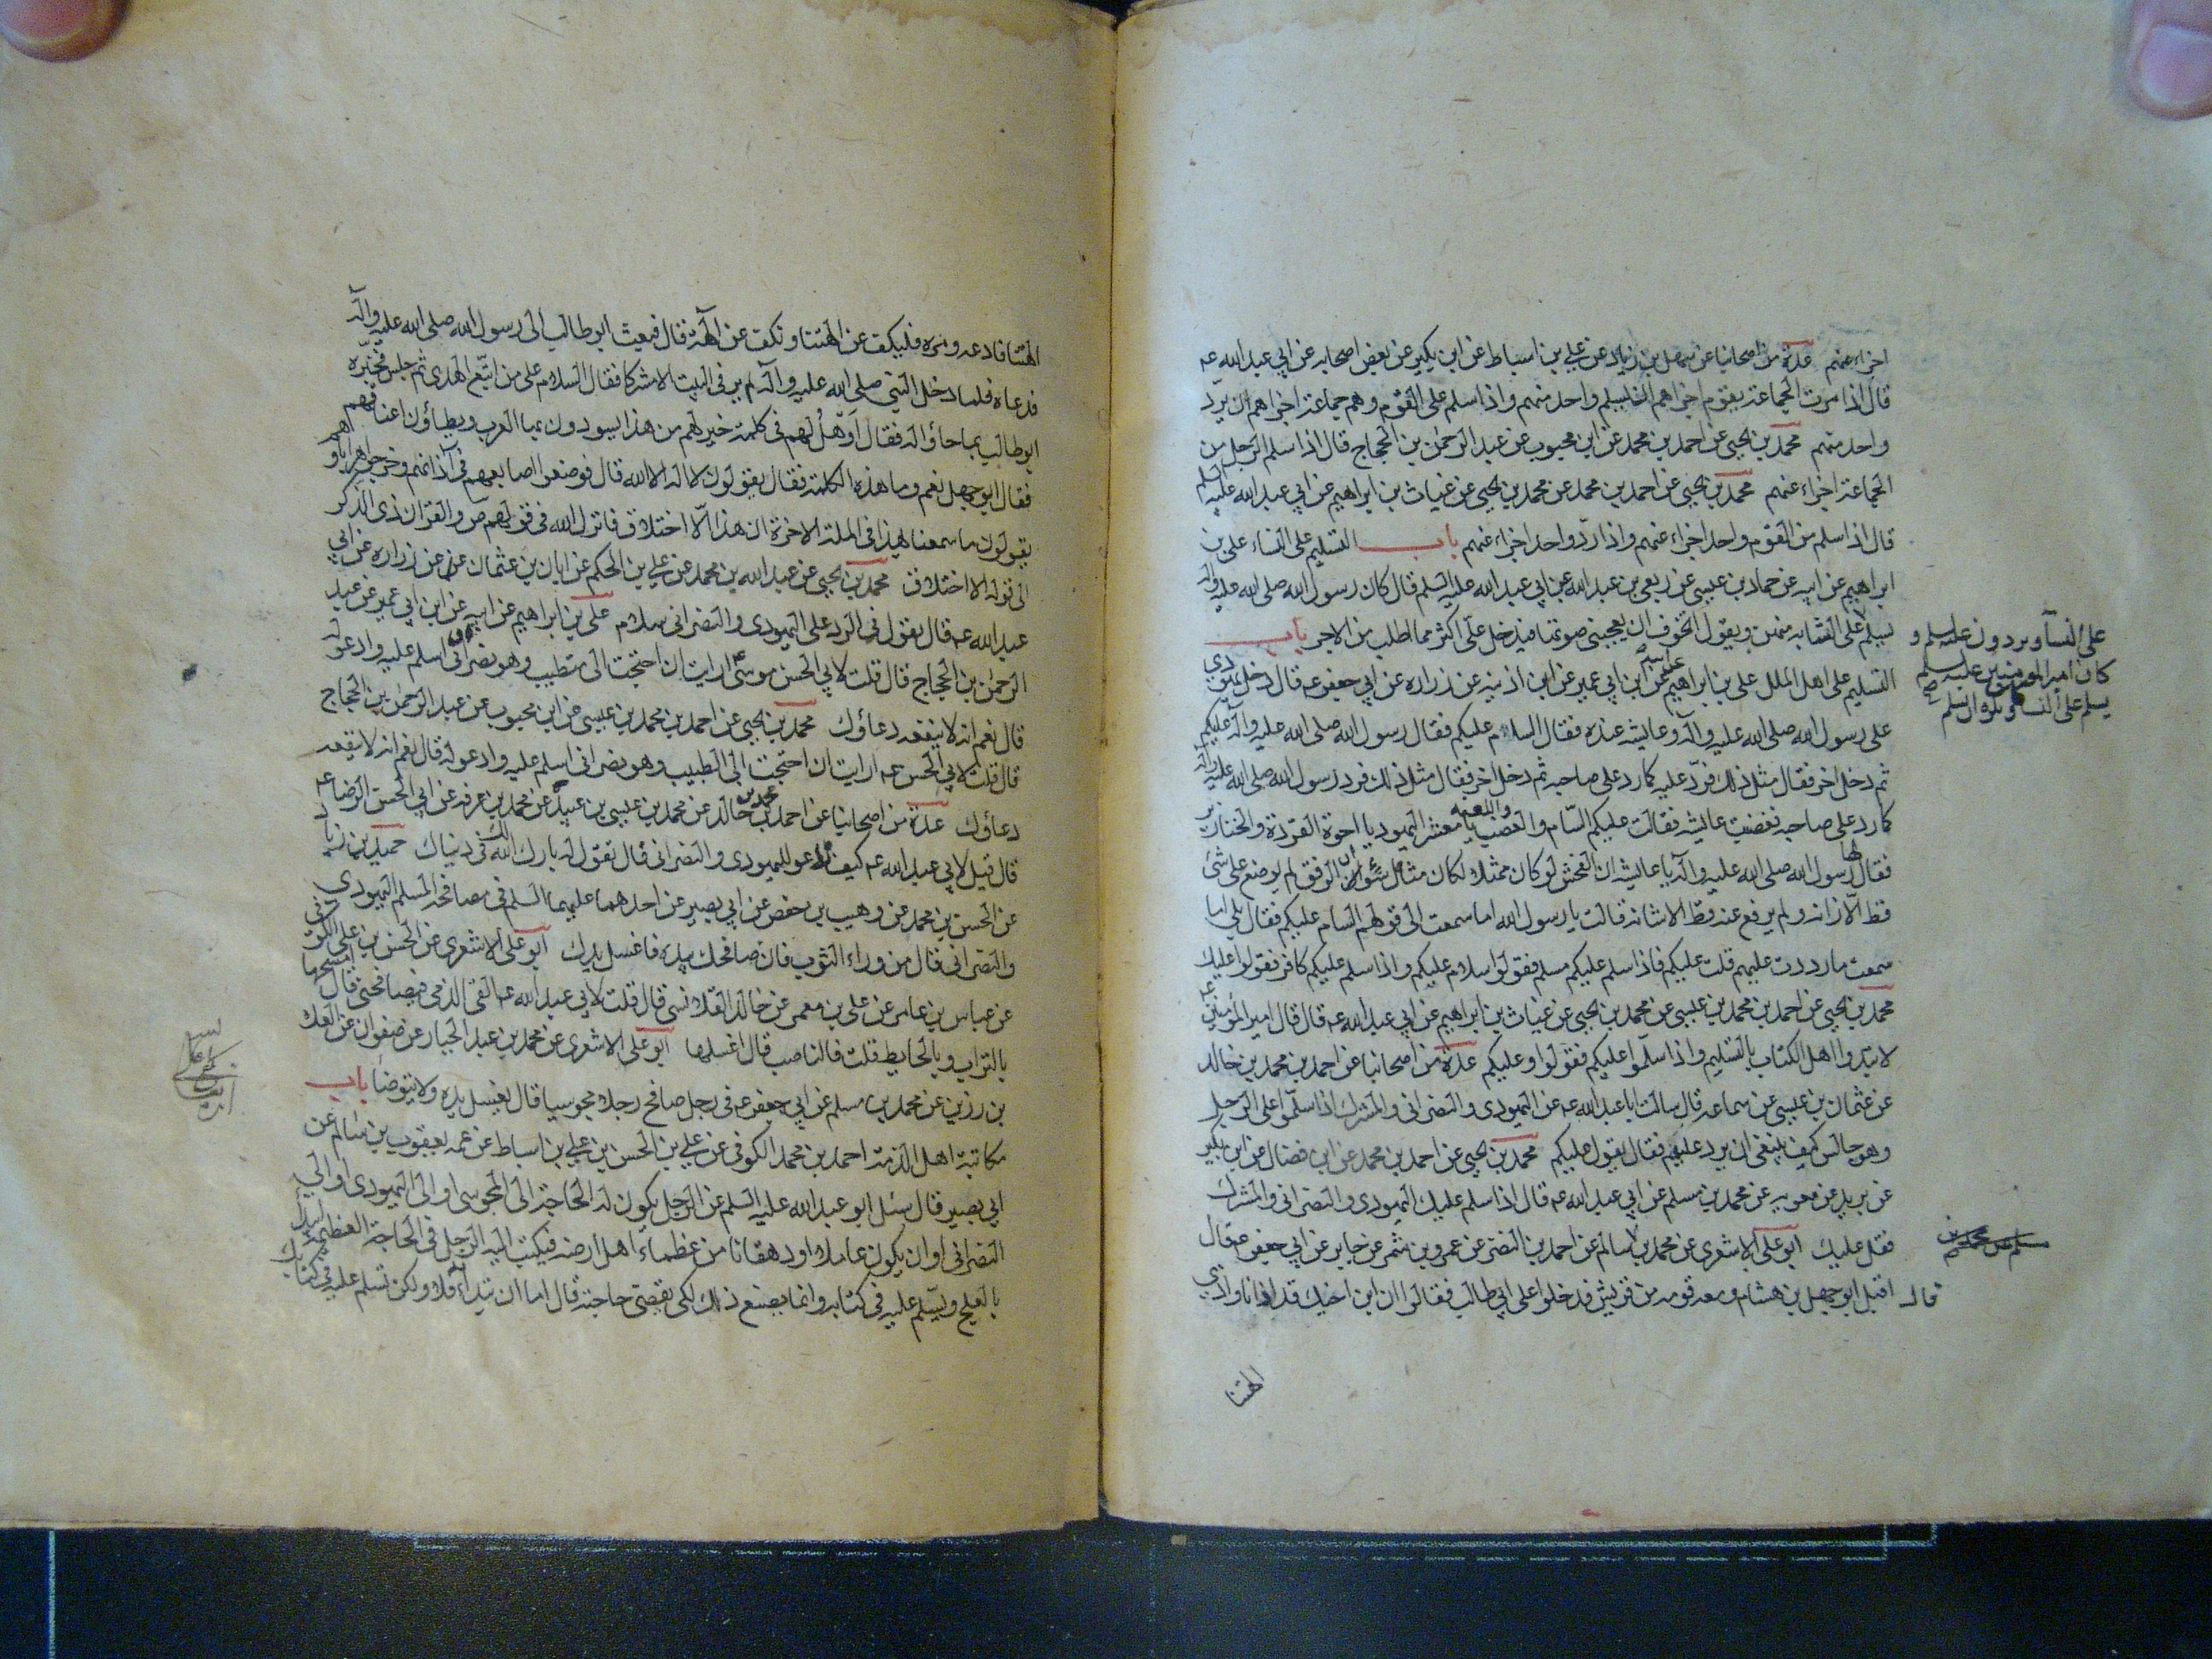 اجزاء عنهم عدة من اصحابنا عن سهل بن زياد عن علي بن اسباط عن ابن بكير عن بعض اصحابه عن ابي عبد الله عه
قال اذا مرت الجماعة بقوم اجزاهم ان يسلم واحد منهم واذا سلم على القوم وهم جماعة اجزاهم ان يرد
واحد منهم محمد بن يحيى عن احمد بن محمد عن ابن محبوب عن عبد الرحمن بن الحجاج قال اذا سلم الرجل من
الجماعة اجزاء عنهم محمد بن يحيى عن احمد بن محمد عن محمد بن يحيى عن غياث بن ابراهيم عن ابي عبد الله عليه السلم
قال اذا سلم من القوم واحد اجزاء عنهم واذا رد واحد اجزاء عنهم باب التسليم على النساء على بن
ابراهيم عن ابيه عن حماد بن عيسى عن ربعي بن عبد الله عن ابي عبد الله عليه السلم قال كان رسول الله صلى الله عليه واله
يسلم على الشابه منهن ويقول اتخوف ان يعجبني صوتها فيدخل علي اكثر مما اطلب من الاجر باب
على النسآ ويرددن عليه السلم و
كان امير المومنين عليه السلم
يسلم على النسا وكان يكره ان يسلم صح
التسليم على اهل الملل على بن ابراهيم عن ابيه عن ابن ابي عمير عن ابن اذينه عن زراره عن ابي جعفر عه قال دخل يهودي
على رسول الله صلى الله عليه واله وعايشه عنده فقال السام عليكم فقال رسول الله صلى الله عليه واله عليكم
ثم دخل اخر فقال مثل ذلك فرد عليه كما رد على صاحبه ثم دخل اخر فقال مثل ذلك فرد رسول الله صلى الله عليه واله
كما رد على صاحبه فغضبت عايشه فقالت عليكم السام والغضب واللعنه يا معشر اليهود يا اخوة القردة والخنازير
فقال لها رسول الله صلى الله عليه واله يا عايشه ان الفحش لو كان ممثلا لكان مثال سوء ان الرفق لم يوضع على شئ
قط الا زانه ولم يرفع عنه قط الا شانه قالت يا رسول الله اما سمعت الى قولهم السام عليكم فقال بلى اما
سمعت ما رددت عليهم قلت عليكم فاذا سلم عليكم مسلم فقولوا سلام عليكم واذا سلم عليكم كافر فقولوا عليك
محمد بن يحيى عن احمد بن محمد بن عيسى عن محمد بن يحيى عن غياث بن ابراهيم عن ابي عبد الله عه قال قال امير المؤمنين عه
لا تبدوا اهل الكتاب بالتسليم واذا سلموا عليكم فقولوا وعليكم عدة من اصحابنا عن احمد بن محمد بن خالد
عن عثمان بن عيسى عن سماعه قال سالت ابا عبد الله عه عن اليهودي والنصراني والمشرك اذا سلموا على الرجل
وهو جالس كيف ينبغي ان يرد عليهم فقال يقول عليكم محمد بن يحيى عن احمد بن محمد عن ابن فضال عن ابن بكير
عن بريد بن معويه عن محمد بن مسلم عن ابي عبد الله عه قال اذا سلم عليك اليهودي والنصراني والمشرك
فقل عليك ابو على الاشعري عن محمد بن سالم عن احمد بن النضر عن عمرو بن شمر عن جابر عن ابي جعفر عه قال
قال اقبل ابو جهل بن هشام ومعه قوم من قريش فدخلوا على ابي طالب فقالوا ان ابن اخيك قد اذانا واذي
الهتنا
الهتنا فادعه ومره فليكف عن الهتنا ونكف عن الهه قال فبعث ابو طالب الى رسول الله صلى الله عليه واله
فدعاه فلما دخل النبي صلى الله عليه واله لم ير في البيت الا مشركا فقال السلام على من اتبع الهدى ثم جلس فخبره
ابو طالب بما جاؤا له فقال او هل لهم في كلمة خير لهم من هذا يسودون بها العرب ويطاؤن اعناقهم
فقال ابو جهل نعم وما هذه الكلمة فقال تقولون لا اله الا الله قال فوضعوا اصابعهم في آذانهم وخرجوا هرابا وهم
يقولون ما سمعنا بهذا في الملة الاخرة ان هذا الا اختلاق فانزل الله في قولهم ص والقران ذي الذكر
الى قوله الا اختلاق محمد بن يحيى عن عبد الله بن محمد عن علي بن الحكم عن ابان بن عثمان عن زراره عن ابي
عبد الله عه قال يقول في الرد على اليهودي والنصراني سلام على بن ابراهيم عن ابيه عن ابن ابي عمير عن عبد
الرحمن بن الحجاج قال قلت لابي الحسن موسى ارايت ان احتجت الى متطبب وهو نصراني اسلم عليه وادعو له
قال نعم انه لا ينفعه دعاؤك محمد بن يحيى عن احمد بن محمد بن عيسى عن ابن محبوب عن عبد الرحمن بن الحجاج
قال قلت لابي الحسن عه ارايت ان احتجت الى الطبيب وهو نصراني اسلم عليه وادعو له قال نعم انه لا ينفعه
دعاؤك عدة من اصحابنا عن احمد بن محمد بن خالد عن محمد بن عيسى بن عبيد عن محمد بن عرفه عن ابي الحسن الرضا عه
قال قيل لابي عبد الله عه كيف ادعو لليهودي والنصراني قال تقول له بارك الله لك في دنياك حميد بن زياد
عن الحسن بن محمد عن وهيب بن حفص عن ابي بصير عن احدهما عليهما السلم في مصافحة المسلم اليهودي
والنصراني قال من وراء الثوب فان صافحك بيده فاغسل يدك ابو على الاشعري عن الحسن بن على الكوفي
عن عباس بن عامر عن على بن معمر عن خالد القلانسي قال قلت لابي عبد الله عه القى الذمي فيصافحني قال امسحها
بالتراب وبالحايط قلت فالناصب قال اغسلها ابو على الاشعري عن محمد بن عبد الجبار عن صفوان عن العلا
بن رزين عن محمد بن مسلم عن ابي جعفر عه في رجل صافح رجلا مجوسيا قال يغسل يده ولا يتوضا باب
مكاتبة اهل الذمة احمد بن محمد الكوفي عن علي بن الحسن بن علي بن اسباط عن عمه يعقوب بن سالم عن
ابي بصير قال سئل ابو عبد الله عليه السلم عن الرجل يكون له الحاجة الى المجوسي او الى اليهودي او الى
النصراني او ان يكون عاملا او دهقانا من عظماء اهل ارضه فيكتب اليه الرجل في الحاجة العظيمة ايبدأ
بالعلج ويسلم عليه في كتابه وانما يصنع ذلك لكي تقضى حاجته قال اما ان تبدأ به فلا ولكن تسلم عليه في كتابك